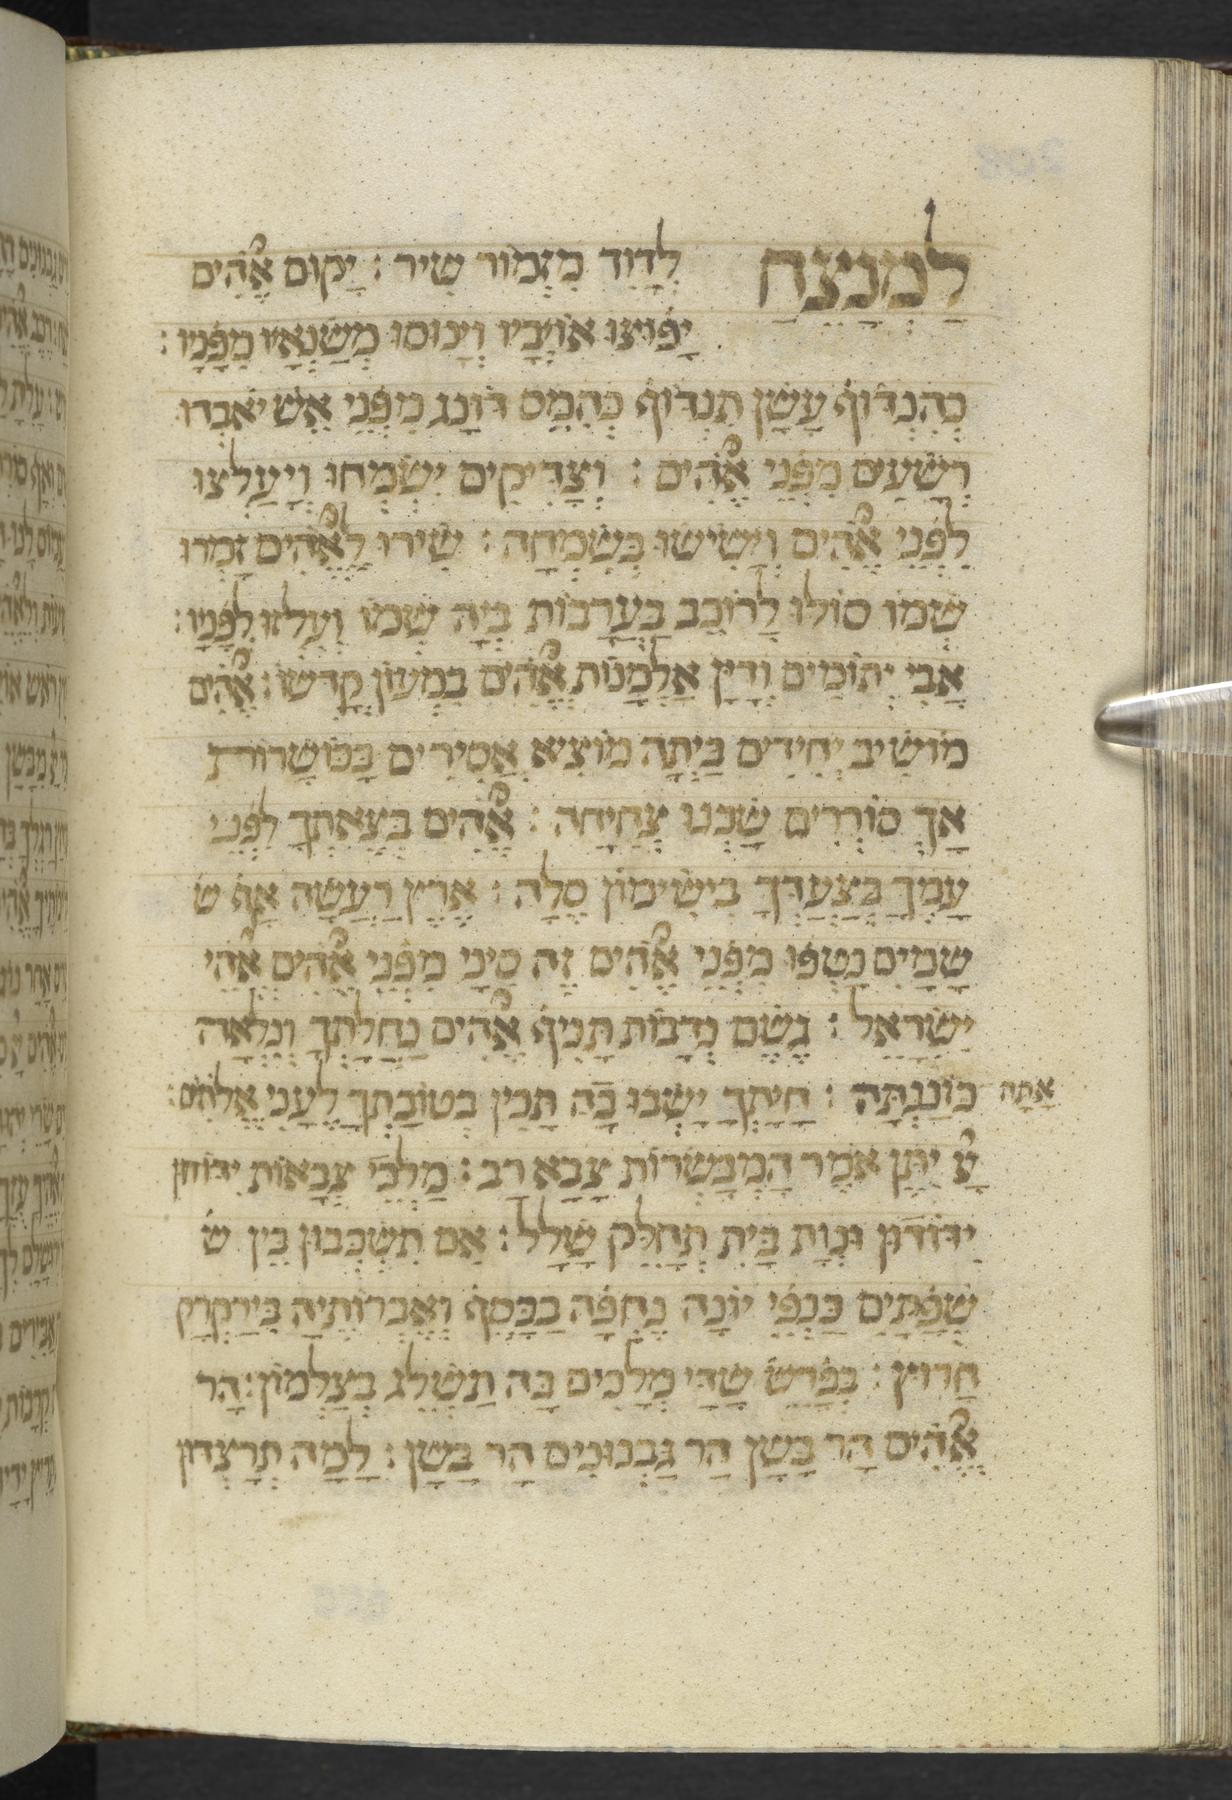 לַמְנַצֵּחַ לְדָוִד מִזְמוֹר שִׁיר : יָקוּם אֱלֹהִים
יָפוּצוּ אוֹיְבָיו וְיָנוּסוּ מְשַׂנְאָיו מִפָּנָיו :
כְּהִנְדּוֹף עָשָׁן תִּנְדּוֹף כְּהִמֵּס דּוֹנַג מִפְּנֵי אֵשׁ יֹאבְדוּ
רְשָׁעִים מִפְּנֵי אֱלֹהִים : וְצַדִּיקִים יִשְׂמְחוּ וְיַעַלְצוּ
לִפְנֵי אֱלֹהִים וְיָשִׂישׂוּ בְּשִׂמְחָה : שִׁירוּ לֵאלֹהִים זַמְּרוּ
שְׁמוֹ סוֹלּוּ לָרוֹכֵב בָּעֲרָבוֹת בְּיָהּ שְׁמוֹ וְעִלְזוּ לְפָנָיו :
אֲבִי יְתוֹמִים וְדַיַּן אַלְמָנוֹת אֱלֹהִים בִּמְעוֹן קָדְשׁוֹ : אֱלֹהִים
מוֹשִׁיב יְחִידִים בַּיְתָה מוֹצִיא אֲסִירִים בַּכּוֹשָׁרוֹת
אַךְ סוֹרְרִים שָׁכְנוּ צְחִיחָה : אֱלֹהִים בְּצֵאתְךָ לִפְנֵי
עַמְּךָ בְּצַעְדְּךָ בִישִׁימוֹן סֶלָה : אֶרֶץ רָעֲשָׁה אַף ש
שָׁמַיִם נָטְפוּ מִפְּנֵי אֱלֹהִים זֶה סִינַי מִפְּנֵי אֱלֹהִים אֱלֹהֵי
יִשְׂרָאֵל : גֶּשֶׁם נְדָבוֹת תָּנִיף אֱלֹהִים נַחֲלָתְךָ וְנִלְאָה
אַתָּה כוֹנַנְתָּהּ : חַיָּתְךָ יָשְׁבוּ בָהּ תָּכִין בְּטוֹבָתְךָ לֶעָנִי אֱלֹהִים :
יִתֶּן אֹמֶר הַמְבַשְּׂרוֹת צָבָא רָב : מַלְכֵי צְבָאוֹת יִדּוֹדוּן
יִדּוֹדוּן וּנְוַת בַּיִת תְּחַלֵּק שָׁלָל : אִם תִּשְׁכְּבוּן בֵּין ש
שְׁפַתָּיִם כַּנְפֵי יוֹנָה נֶחְפָּה בַכֶּסֶף וְאֶבְרוֹתֶיהָ בִּירַקְרַק
חָרוּץ : בְּפָרֵשׂ שַׁדַּי מְלָכִים בָּהּ תַּשְׁלֵג בְּצַלְמוֹן : הַר
אֱלֹהִים הַר בָּשָׁן הַר גַּבְנוּנִּים הַר בָּשָׁן : לָמָּה תְּרַצְּדוּן